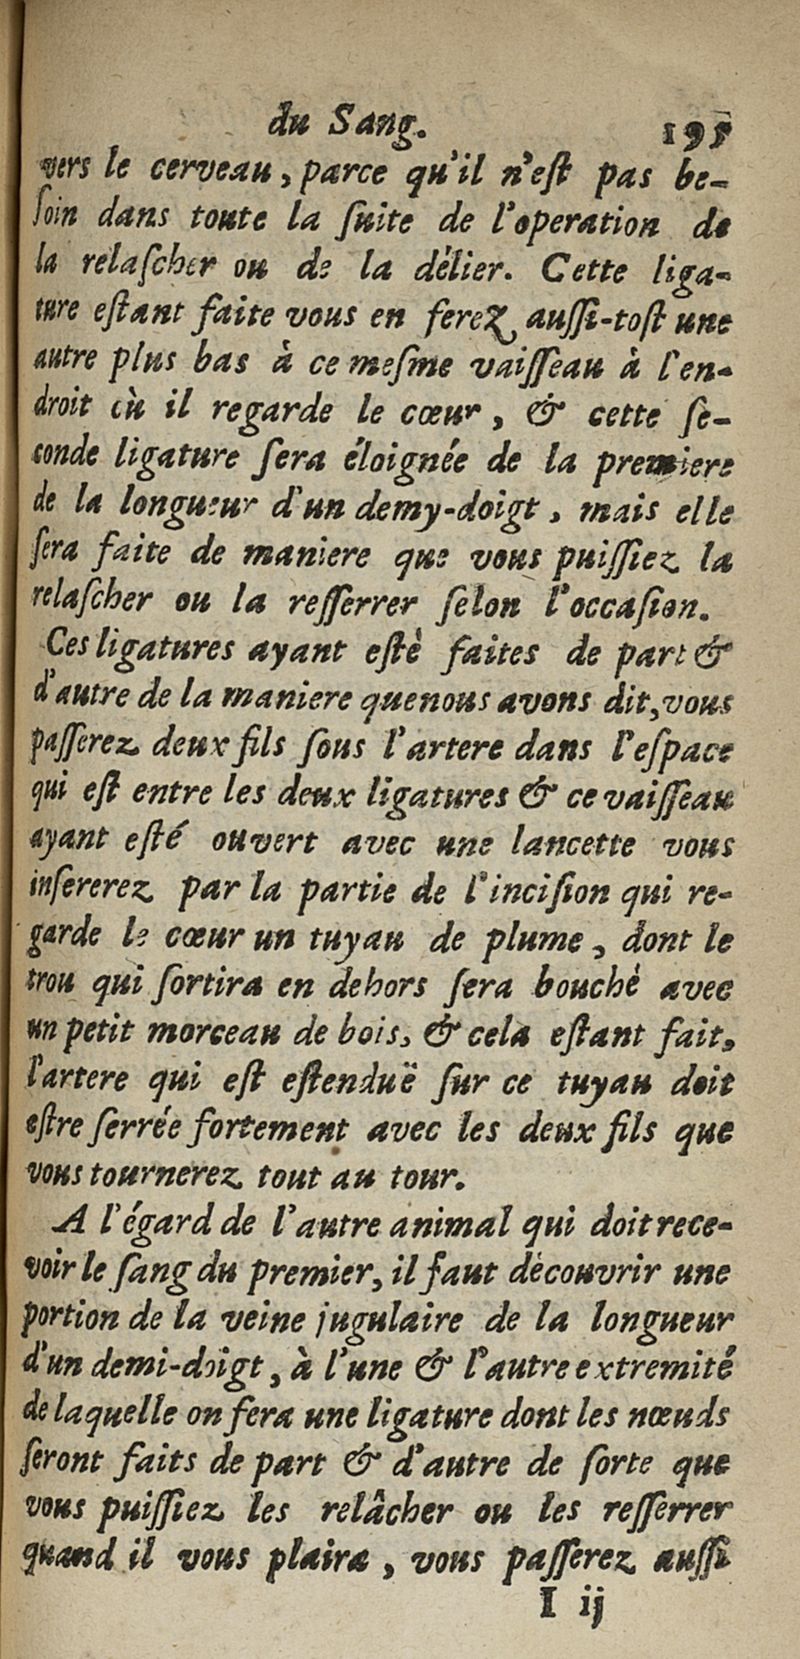 du Sang. 195
vers le cerveau, parce qu'il n'eſt pas be-
ſoin dans toute la ſuite de l'operation de
la relaſcher ou de la délier. Cette liga-
ture eſtant faite vous en ferez auſſi-toſt une
autre plus bas à ce meſme vaiſſeau à l'en-
droit où il regarde le cœur, & cette ſe-
conde ligature ſera éloignée de la premiere
de la longueur d'un demy-doigt, mais elle
ſera faite de maniere que vous puiſſiez la
relaſcher ou la reſſerrer ſelon l'occaſion.
Ces ligatures ayant eſtè faites de part &
d'autre de la maniere que nous avons dit, vous
paſſerez deux fils ſous l'artere dans l'eſpace
qui eſt entre les deux ligatures & ce vaiſſeau
ayant eſté ouvert avec une lancette vous
inſererez par la partie de l'inciſion qui re-
garde le cœur un tuyau de plume, dont le
trou qui ſortira en dehors ſera bouchè avec
un petit morceau de bois, & cela eſtant fait,
l'artere qui eſt eſtenduë ſur ce tuyau doit
eſtre ſerrée fortement avec les deux fils que
vous tournerez tout au tour.
A l'égard de l'autre animal qui doit rece-
voir le ſang du premier, il faut dècouvrir une
portion de la veine jugulaire de la longueur
d'un demi-doigt, à l'une & l'autre extremité
de laquelle on fera une ligature dont les nœuds
ſeront faits de part & d'autre de ſorte que
vous puiſſiez les relâcher ou les reſſerrer
quand il vous plaira, vous paſſerez auſſi
I ij